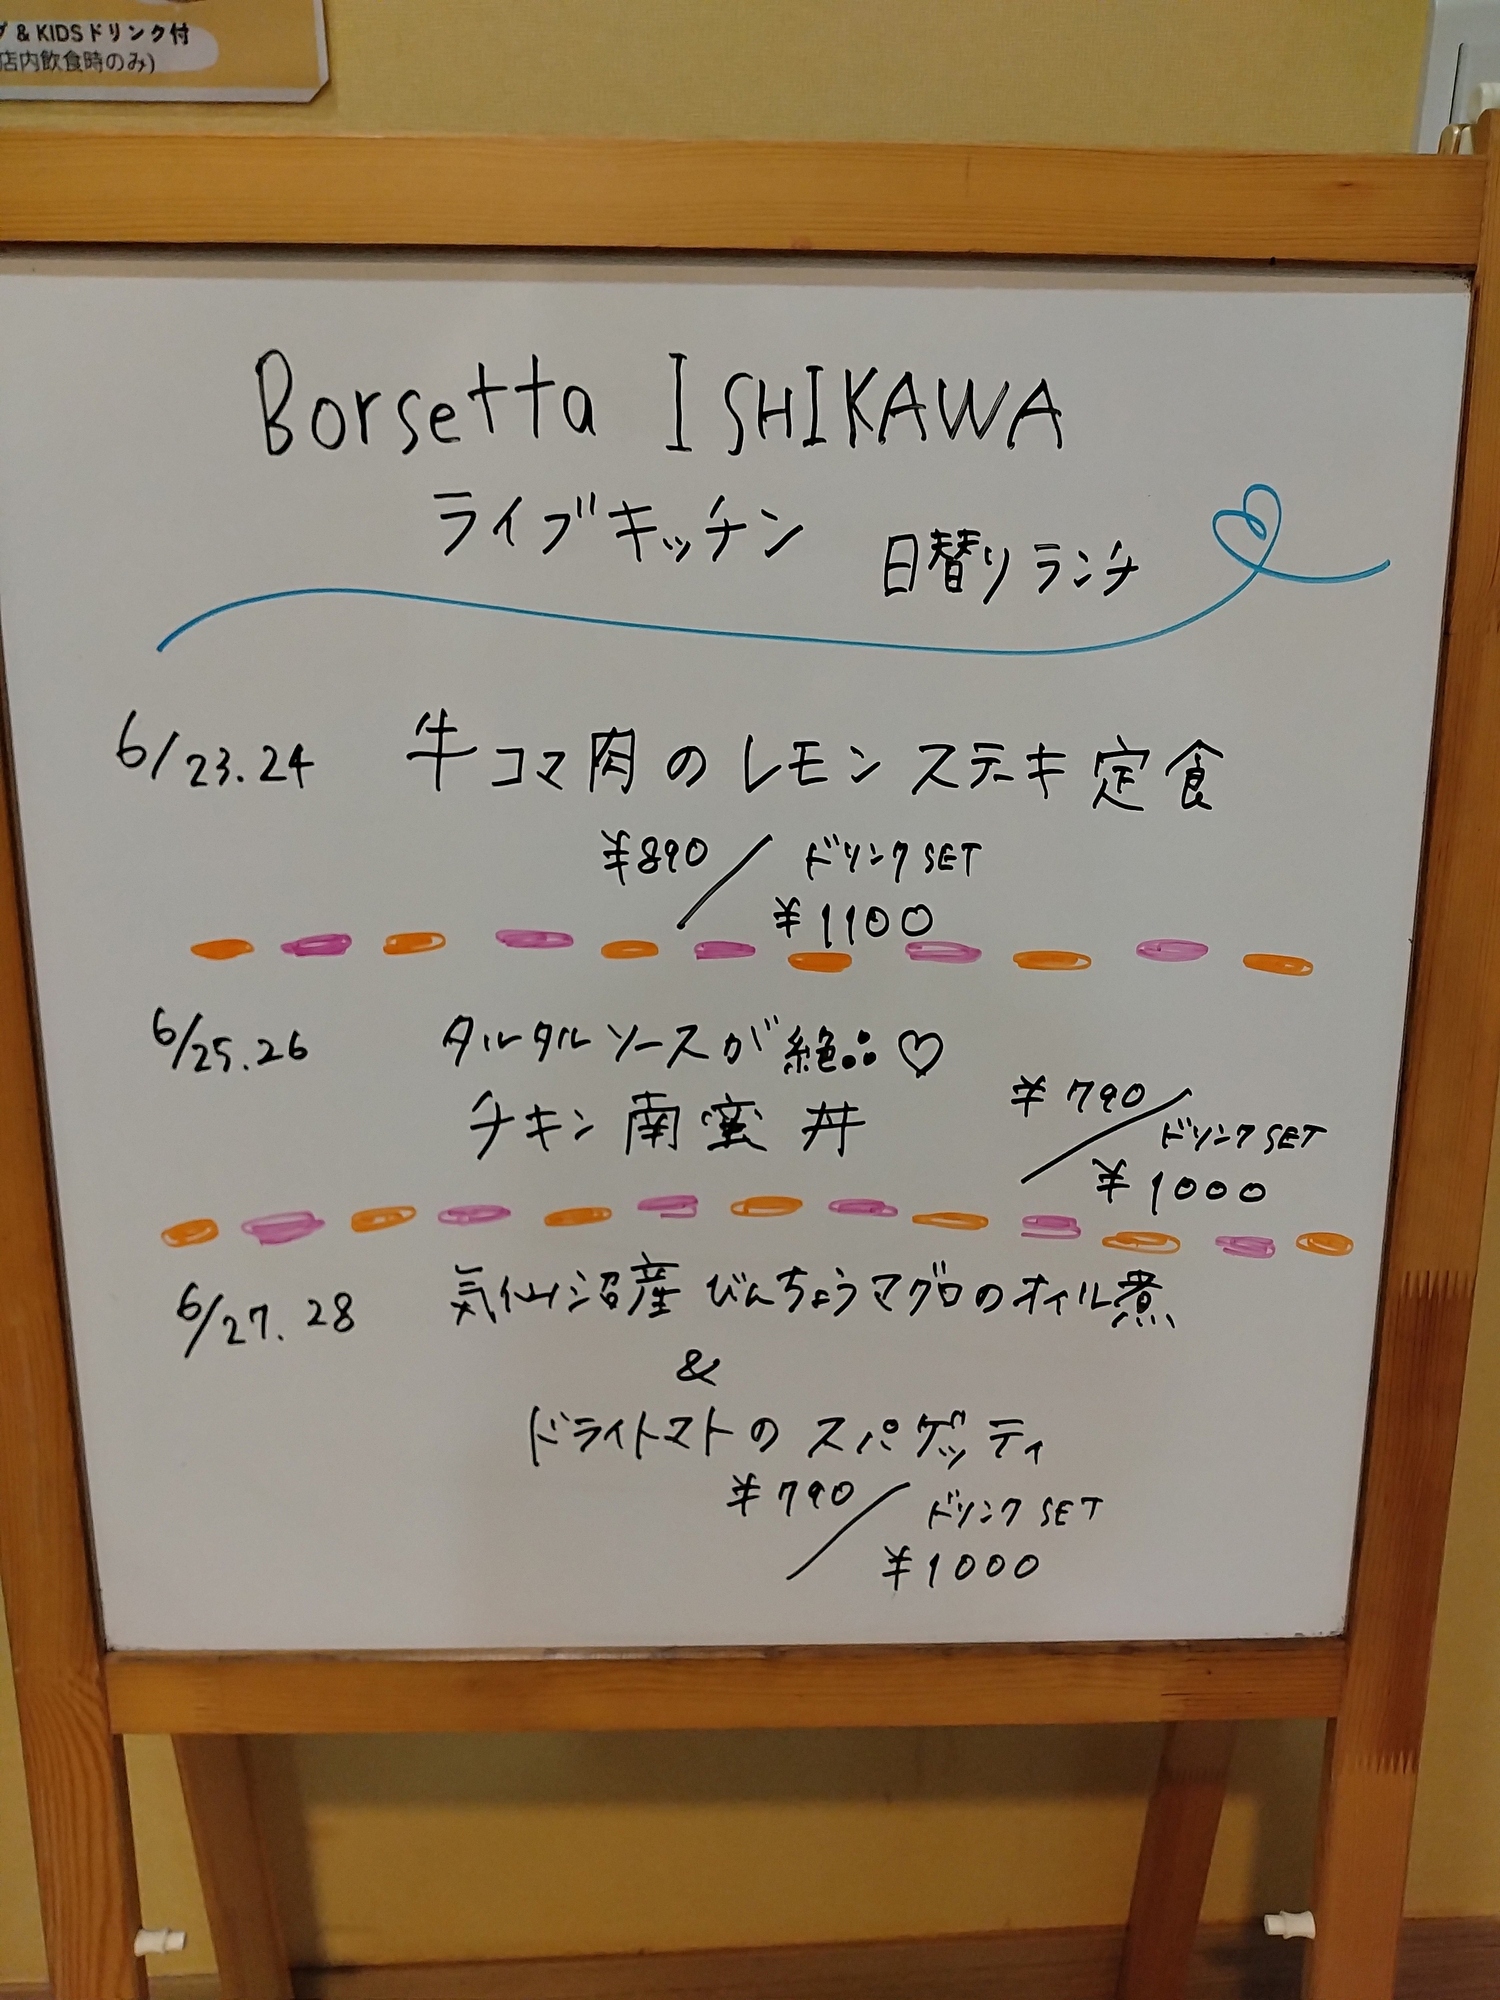 & KIDSドリンク付
店内飲食時のみ)
Borsetta ISHIKAWA
ライブキッチン 日替りランチ
6/23.24 牛コマ肉のレモンステーキ定食
¥890/ドリンクSET
¥1100
6/25.26 タルタルソースが絶品♡
チキン南蛮丼 ¥790/ドリンクSET
¥1000
6/27.28 気仙沼産びんちょうマグロのオイル煮
&
ドライトマトのスパゲッティ
¥790/ドリンクSET
¥1000